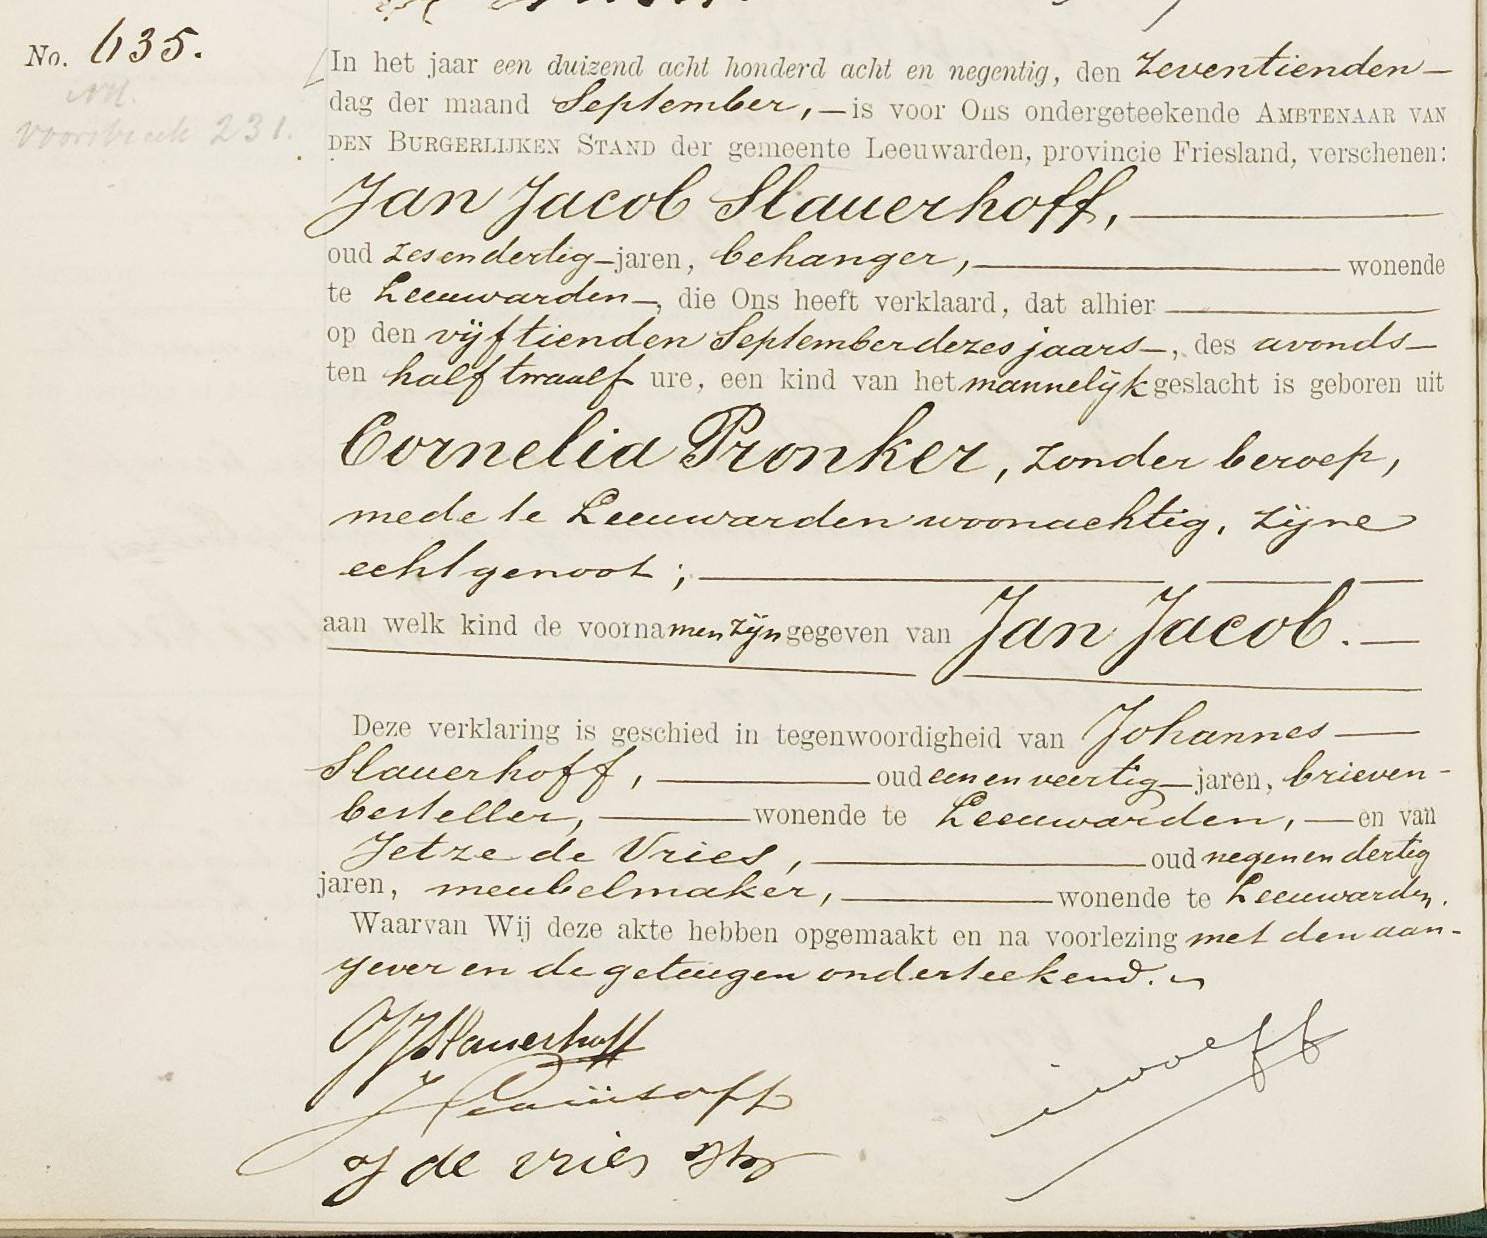 No. 635.
voorstreek 231.
In het jaar een duizend acht honderd acht en negentig, den zeventienden—
dag der maand September,—is voor Ons ondergeteekende Ambtenaar van
den Burgerlijken Stand der gemeente Leeuwarden, provincie Friesland, verschenen:
Jan Jacob Slauerhoff,
oud zesendertig—jaren, behanger, wonende
te Leeuwarden—, die Ons heeft verklaard, dat alhier
op den vijftienden September dezes jaars—, des avonds—
ten half twaalf ure, een kind van het mannelijk geslacht is geboren uit
Cornelia Pronker, zonder beroep,
mede te Leeuwarden woonachtig, zijne
echtgenoot;
aan welk kind de voornamen zijn gegeven van Jan Jacob.—
Deze verklaring is geschied in tegenwoordigheid van Johannes—
Slauerhoff, oud een en veertig—jaren, brieven-
besteller, wonende te Leeuwarden,—en van
Jetze de Vries, oud negen en dertig
jaren, meubelmaker, wonende te Leeuwarden.
Waarvan Wij deze akte hebben opgemaakt en na voorlezing met den aan-
gever en de getuigen onderteekend.
JJSlauerhoff
J Slauerhoff
J de vries
wolff